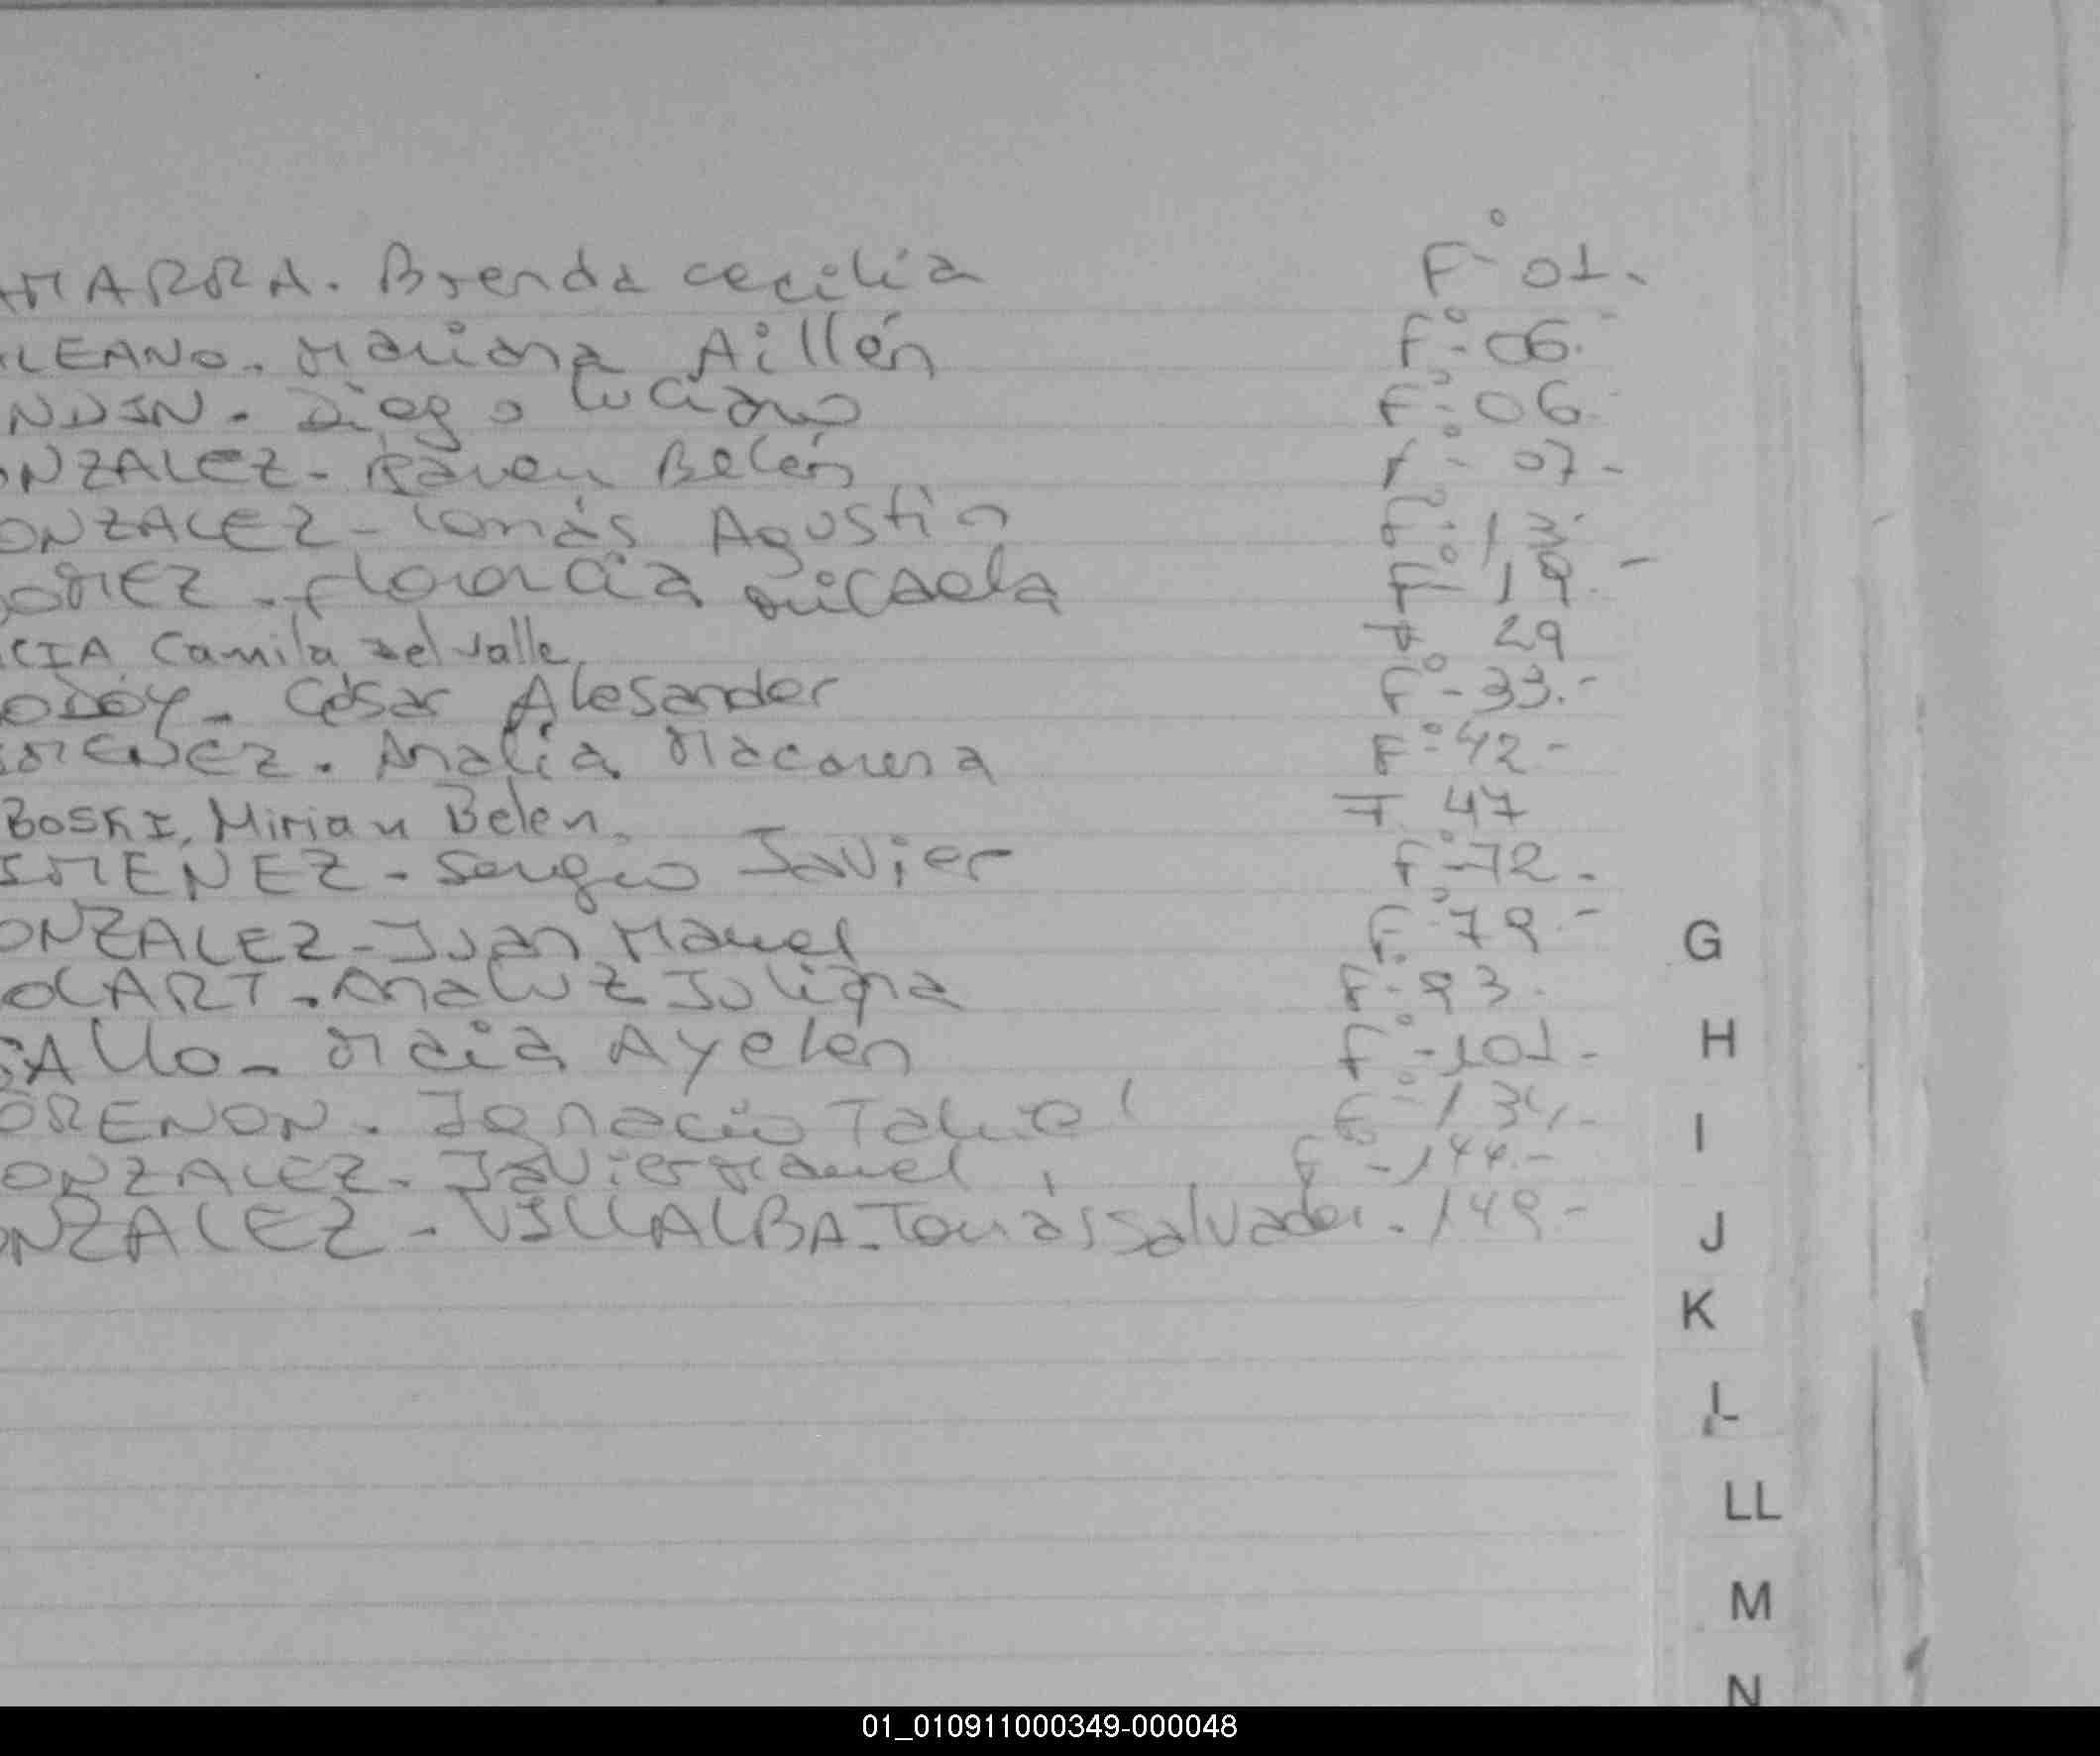 AMARRA. Brenda cecilia F° 01.
LEANO. Mariana Aillén F°- 06.
NDIN. Diego Luciano F°- 06.
ONZALEZ- Karen Belén F°- 07-
ONZALEZ- Tomás Agustin F°- 13.
OMEZ. Florencia Micaela F°- 19.-
CIA Camila del Valle. F° 29
ODOY- César Alesander F°- 33.-
IMENEZ. Analía Macarena F°- 42-
BOSKI, Mirian Belen. F 47
IMENEZ- Sergio Javier F°-72.
ONZALEZ-Juan Manuel F°- 79-
OLART. Analuz Juliana F°- 93.
GALLO- Maia Ayelen F°-101-
ORENON. Ignacio Tahiel F°- 134.-
ONZALEZ. Javier Manuel F° -144.-
ONZALEZ- VILLALBA-Tomás Salvador. 149-
G
H
I
J
K
L
LL
M
N
01_010911000349-000048